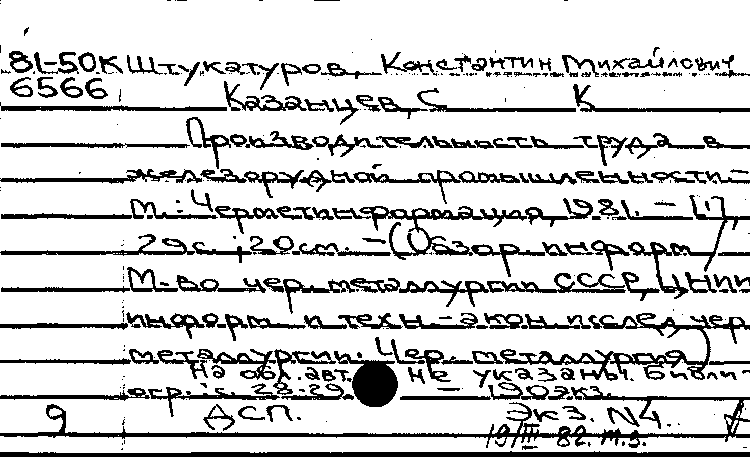 81-50К Штукатуров, Константин Михайлович
6566
Казанцев, С К
Производительность труда в
железорудной промышленности. -
М.: Черметинформация, 1981. - [1],
29 с.; 20 см. - (Обзор. информ /
М-во чер. металлургии СССР, ЦНИИ
информ и техн.-экон. исслед. чер
металлургии. Чер. металлургия)
На обл. авт. не указаны. Библи-
огр.: с. 28-29. - 190 экз.
9 ДСП. Экз. N4.
19/III-82. т.з.